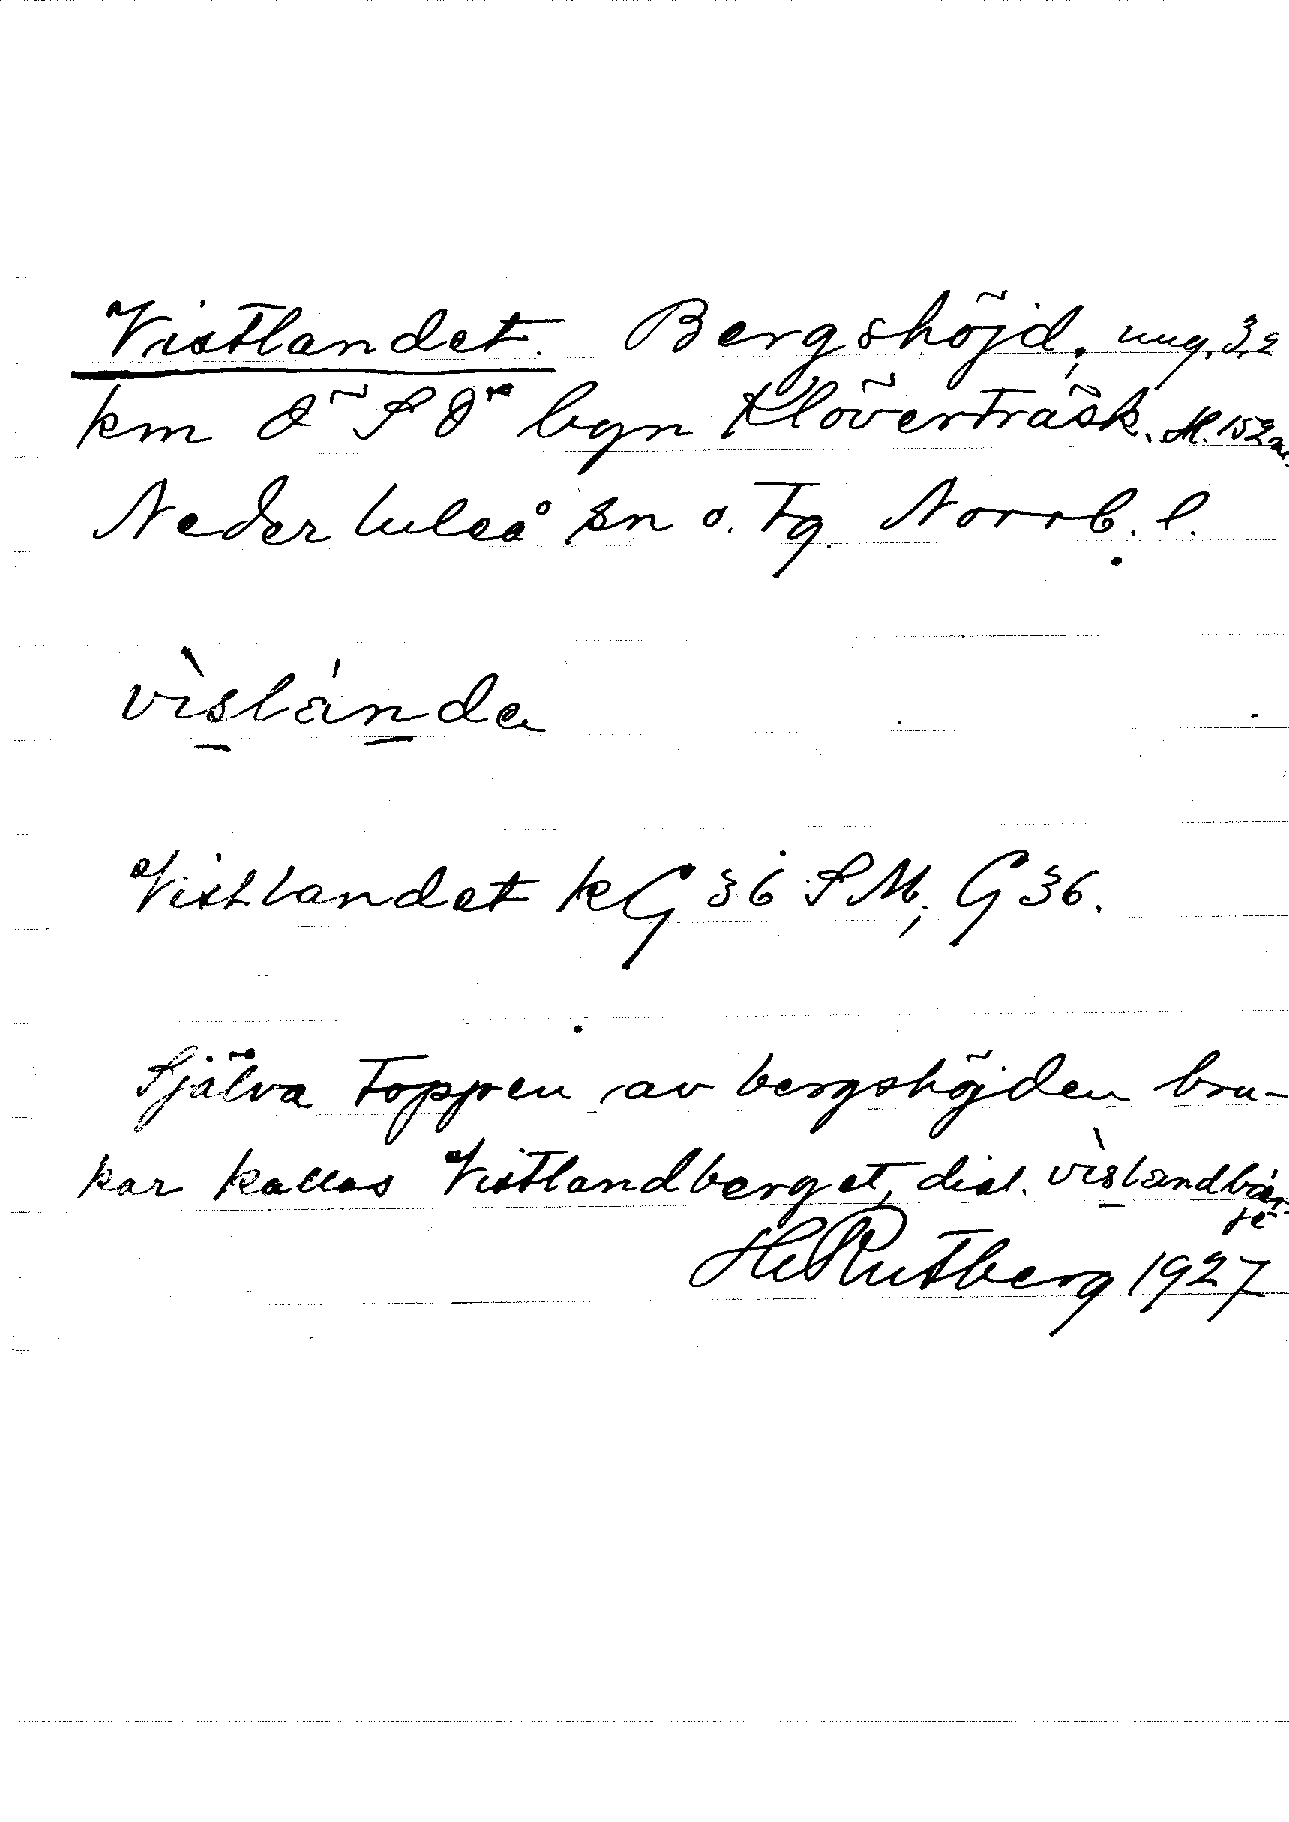 Vistlandet. Bergshöjd, ung. 3,2
km Ö S Ö byn Klöverträsk. H. 152 m.
Nederluleå sn o. tg. Norrb. l.
vìslánda
Vistlandet kG 36 SM; G 36.
Själva toppen av bergshöjden bru-
kar kallas Vistlandberget, dial. vìslandbär-
je
He Rutberg 1927